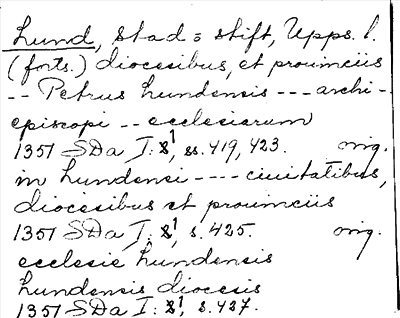 Lund, stad = stift, Upps. l.
(forts.) diocesibus, et prouinciis
-- Petrus Lundensis --- archi-
episcopi -- ecclesiarum
1351 SDa I: 8¹, ss. 419, 423. orig.
in Lundensi ---- ciuitatibus,
diocesibus et prouinciis
1351 SDa I: 8¹, s. 425. orig.
ecclesie Lundensis
Lundensis diocesis
1351 SDa I: 8¹, s. 427.